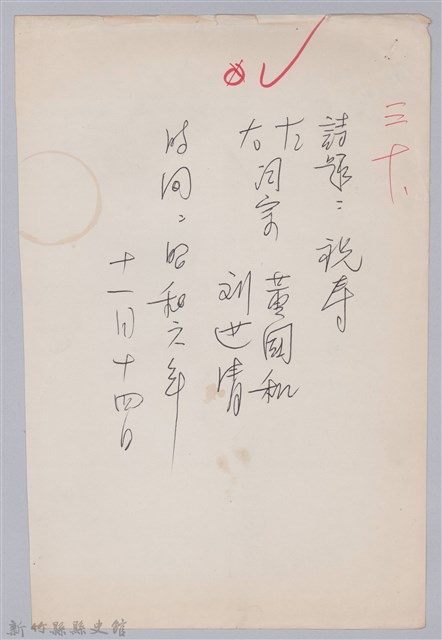 三十、
詩題：祝寿
左
右詞宗
黃國和
刘世清
时间：昭和六年
十一月十四日
新竹縣縣史館